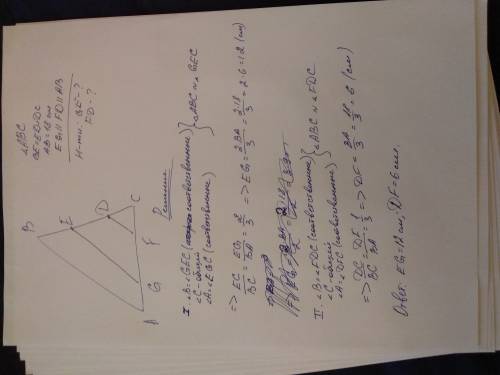 △ABC
BE=ED=DC
AB=18 см
EG || FD || AB
Н-ти: GE-?
FD-?
B
E
D
C
A
G
F
Решение
I. ∠B=∠GEC (соответственные)
∠C-общий
∠A=∠EGC (соответственные)
} △ABC ~ △GEC
=> EC/BC = EG/BA = 2/3 => EG = 2BA/3 = 2·18/3 = 2·6=12 (см)
II. ∠B=∠FDC (соответственные)
∠C-общий
∠A=∠DFC (соответственные)
} △ABC ~ △FDC
=> DC/BC = DF/BA = 1/3 => DF = BA/3 = 18/3 = 6 (см)
Ответ: EG=12 см; DF=6 см.